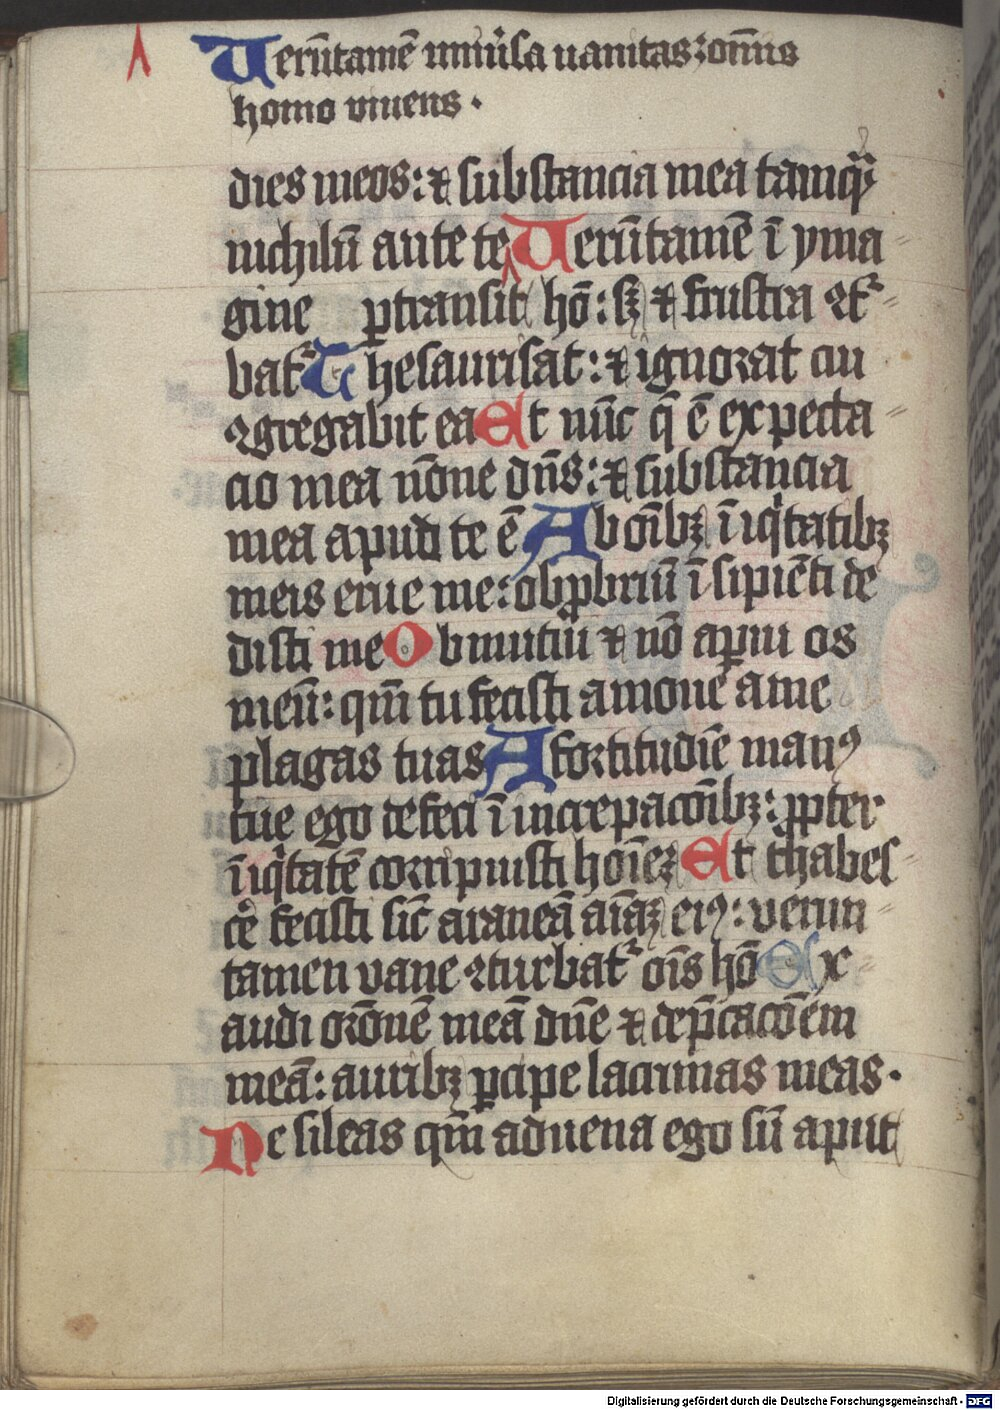 Uerūtamē uniũsa uanitas: om̄nis
homo viuens .
dies meos: ⁊ substancia mea tamqͣ
nichilū ante te Uerūtamē ī yma
gine ꝑtransit hō: sꝫ ⁊ frustra ꝯt͛
bat͛ Thesaurisat: ⁊ ignorat cui
ꝯgregabit ea Et nūc q̄ ē expecta
cio mea nōne dn̄s: ⁊ substancia
mea apud te ē Ab oīb⁊ īiqͥtatib⁊
meis erue me: obꝓbriū īsipiēti de
disti me Obmutui ⁊ nō aꝑui os
meū: qm̄ tu fecisti amoue a me
plagas tuas A fortitudīe manꝰ
tue ego defeci ī increpacōīb⁊: ꝓpter
īiqͥtatē corripuisti hoīeꝫ Et thabes
c̄e fecisti sic̄ araneā aīaꝫ eiꝰ: verun
tamen vane ꝯturbat͛ oīs hō Ex
audi orōnē meā dn̄e ⁊ dep̄cacōem
meā: aurib⁊ ꝑcipe lacrimas meas.
Ne sileas qm̄ aduena ego sū aput
Digitalisierung gefördert durch die Deutsche Forschungsgemeinschaft - DFG